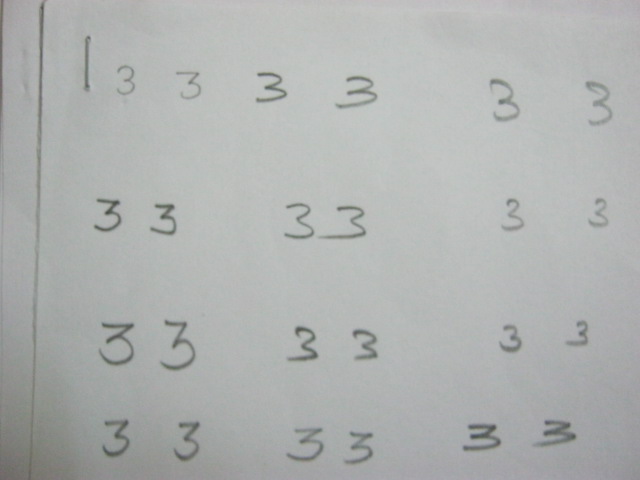 3 3 3 3 3 3
3 3 3 3 3 3
3 3 3 3 3 3
3 3 3 3 3 3